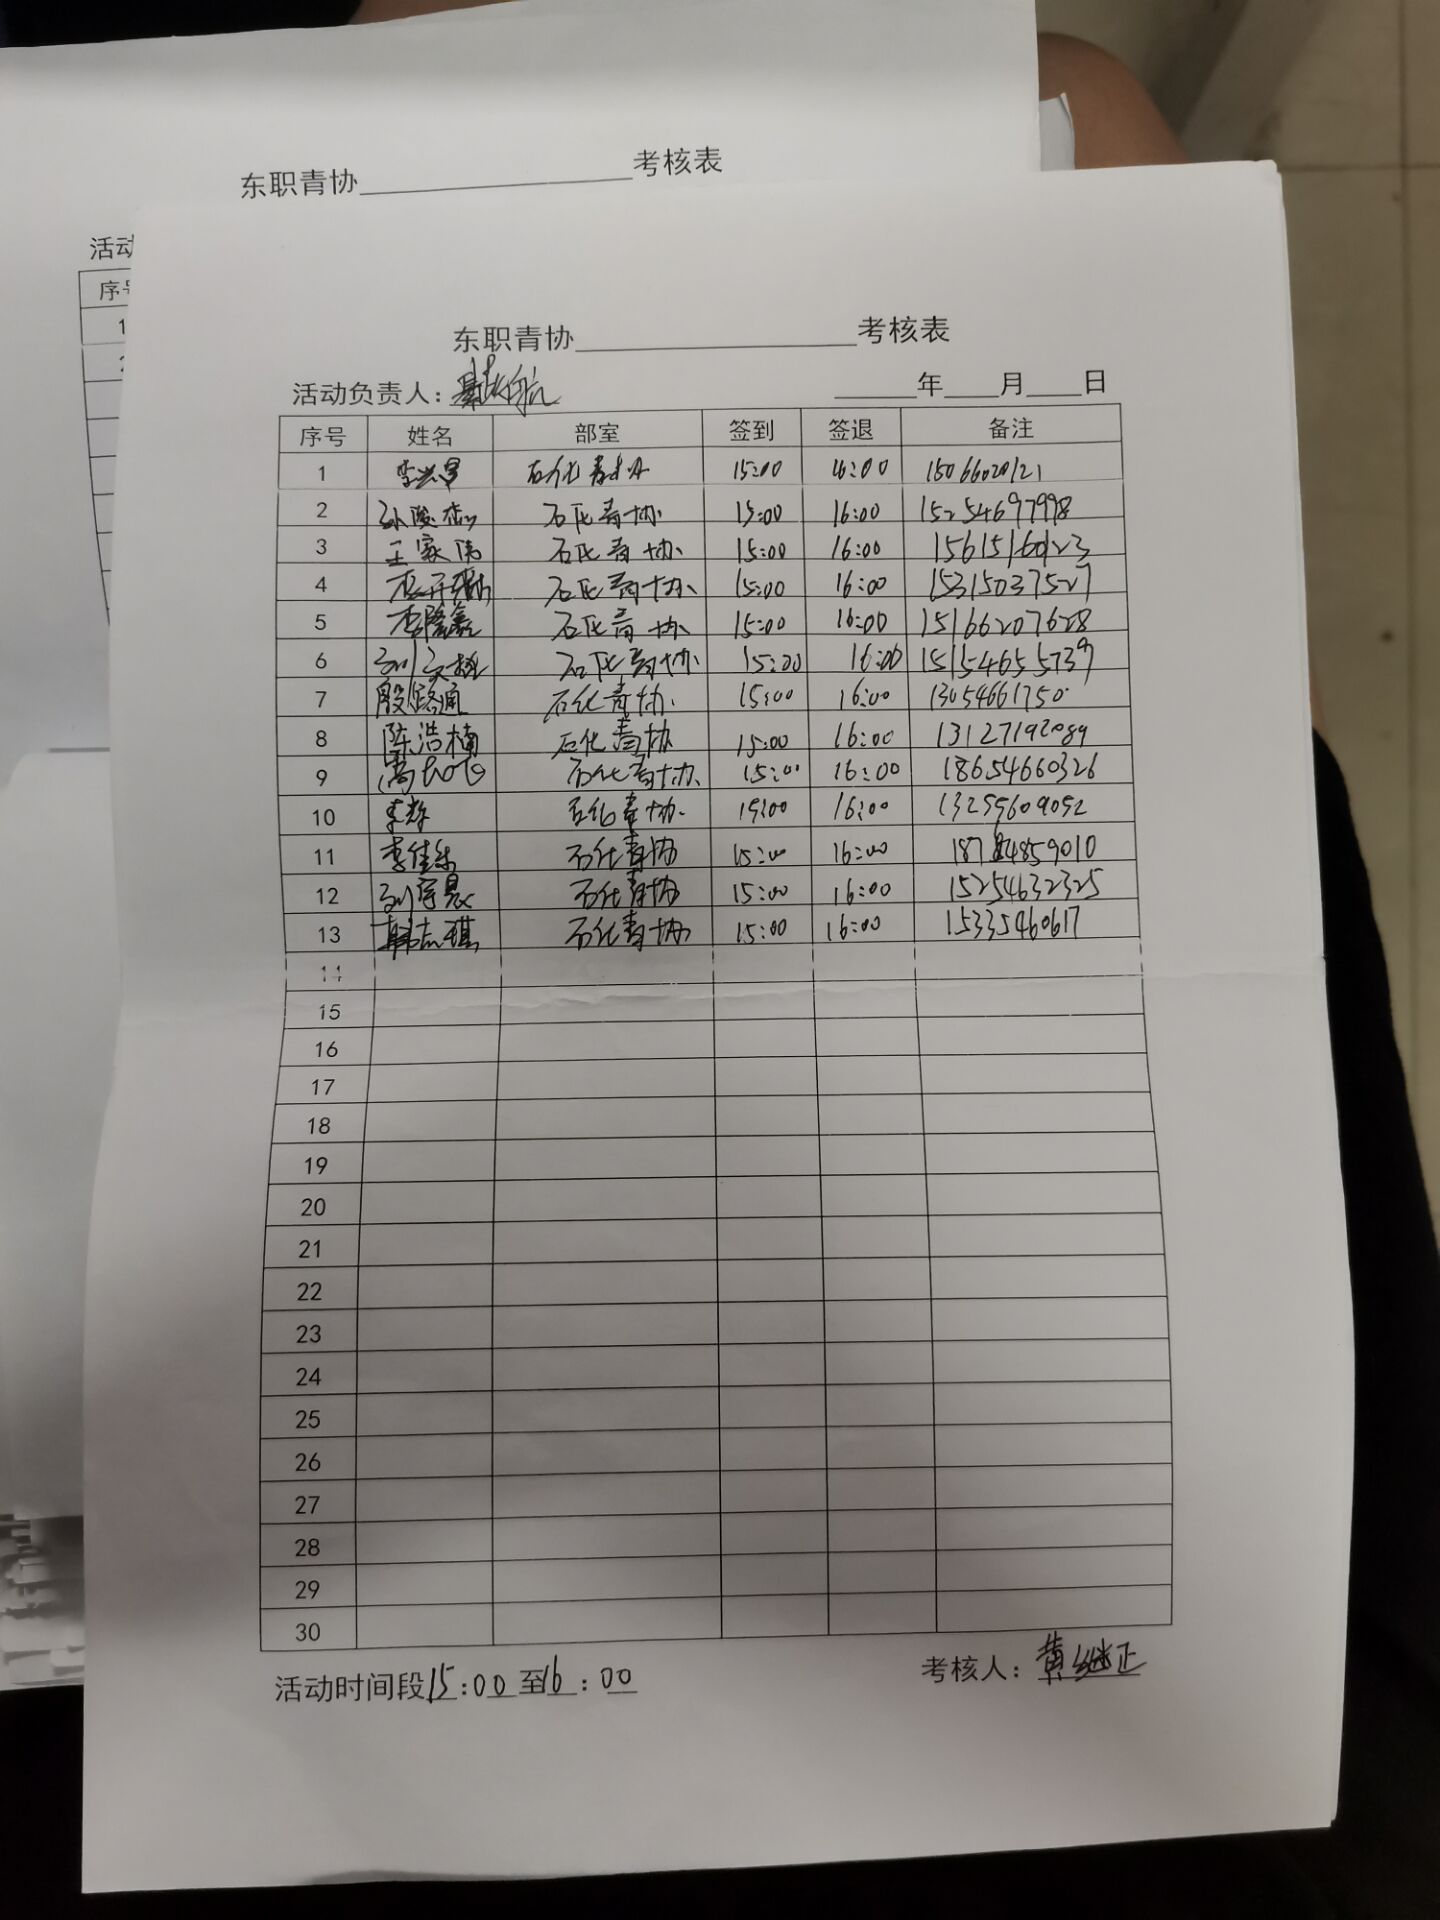 东职青协 考核表
活动
序号
1
东职青协 考核表
活动负责人: 年 月 日
序号 姓名 部室 签到 签退 备注
1 石化青协 15:00 16:00 15066020121
2 石化青协 15:00 16:00 15254697998
3 王家伟 石化青协 15:00 16:00 15615160123
4 石化青协 15:00 16:00 15315037527
5 李隆鑫 石化青协 15:00 16:00 15166207628
6 刘文栋 石化青协 15:00 16:00 15154655739
7 殷路通 石化青协 15:00 16:00 13054661750
8 陈浩楠 石化青协 15:00 16:00 13127192089
9 石化青协 15:00 16:00 18654660326
10 石化青协 15:00 16:00 13255609052
11 李佳乐 石化青协 15:00 16:00
12 刘宇晨 石化青协 15:00 16:00 15254632325
13 韩志琪 石化青协 15:00 16:00 15335460617
14
15
16
17
18
19
20
21
22
23
24
25
26
27
28
29
30
活动时间段15:00至16:00 考核人: 黄继正